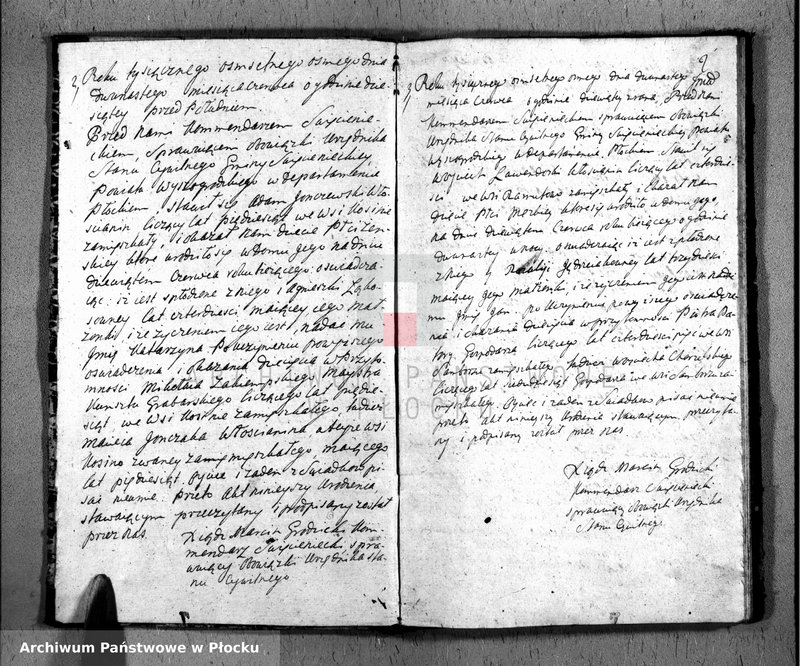 Roku tysiącznego osmsetnego osmego dnia
dwunastego miesiąca Czerwca o godzinie dzie-
siątey przed Południem.
Przed Nami Kommendarzem
Sprawuiącym Obowiązki Urzędnika
Stanu Cywilnego Gminy
Powiatu Wyszogrodzkiego w Departamencie
Płockim, stawił się Adam Jonczewski Wło-
scianin liczący lat pięćdziesiąt we wsi Kosinie
zamięszkały, i okazał Nam dziecię Płci Żen-
skiey które urodziło się w domu jego na dniu
dziewiątym Czerwca roku bieżącego; oswiadcza-
iąc: iż jest spłodzone z niego i Agnieszki
lat czterdziesci maiącey jego mał-
żonki, i że życzeniem jego jest, nadać mu
Imię Katarzyna Po uczynieniu powyższego
oswiadczenia i okazaniu dziecięcia w Przyto-
mności Mikołaia Majstra
Kunsztu Grabarskiego liczącego lat pięćdzie-
siąt, we wsi Kosinie zamięszkałego, tudzież
Macieia Jonczaka Włoscianina także we wsi
Kosino zwaney zamięszkałego, maiącego
lat pięćdziesiąt, Oyciec i żaden z Swiadków pi-
sać nieumie, przeto Akt ninieyszy Urodzenia,
stawaiącym przeczytany i podpisany został
przez Nas.
Xiądz Marcin Grodzicki Kom-
mendarz spra-
wuiący Obowiązki Urzędnika Sta-
nu Cywilnego
2
Roku tysiącznego osmsetnego osmego dnia dwunastego
miesiąca Czerwca o godzinie dziewiąty z rana, Przed Nami
Kommendarzem sprawuiącym Obowiązki
Urzędnika Stanu Cywilnego Gminy Powiatu
Wyszogrodzkiego w Departamencie Płockim Stawił się
Woyciech Lewandoski Włoscianin liczący lat czterdzie-
sci we wsi zamięszkały i okazał Nam
dziecię Płci Męzkiey które się urodziło w domu jego,
na dniu dziewiątym Czerwca roku bieżącego o godzinie
dwunastey w nocy, oswiadczaiąc iż jest spłodzone
z niego y lat trzydziesci
maiącey jego małżonki, i iż życzeniem jego jest nadać
mu Imię Jan. po uczynieniu powyższego oswiadcze-
nia i okazaniu dziecięcia w przytomnosci Piotra
Gospodarza liczącego lat czterdziesci pięć we wsi
zamięszkałego tudzież Woyciecha
liczącego lat Gospodarza we wsi
zamięszkałego. Oyciec i żaden ze Swiadków pisać nieumie
przeto Akt ninieyszy Urodzenia stawaiącym, przeczyta-
ny i podpisany został przez Nas
Xiądz Marcin Grodzicki
Kommendarz
sprawuiący Obowiązki Urzędnika
Stanu Cywilnego
ARCHIWUM PAŃSTWOWE
W PŁOCKU
Archiwum Państwowe w Płocku